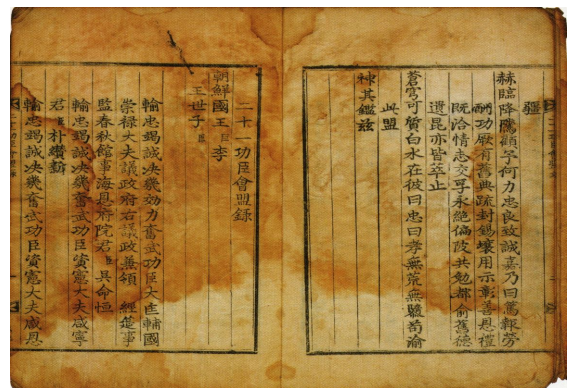 疆
赫臨降騭顧予何力忠良致誠嘉乃曰篤報勞
酬功厥有舊典疏封錫壤用示彰善恩禮
既洽情志交孚永絶偏陂共勉都俞舊德
遺昆亦皆萃止
蒼穹可質白水在彼曰忠曰孝無荒無驕苟渝
此盟
神其鑑玆
二十一功臣會盟錄
朝鮮國王臣李
王世子臣
輸忠竭誠決幾効力奮武功臣大匡輔國
崇禄大夫議政府右議政兼領 經筵事
監春秋館事海恩府院君臣吳命恒
輸忠竭誠決幾奮武功臣資憲大夫咸寧
君臣朴纉新
輸忠竭誠決幾奮武功臣資憲大夫咸恩